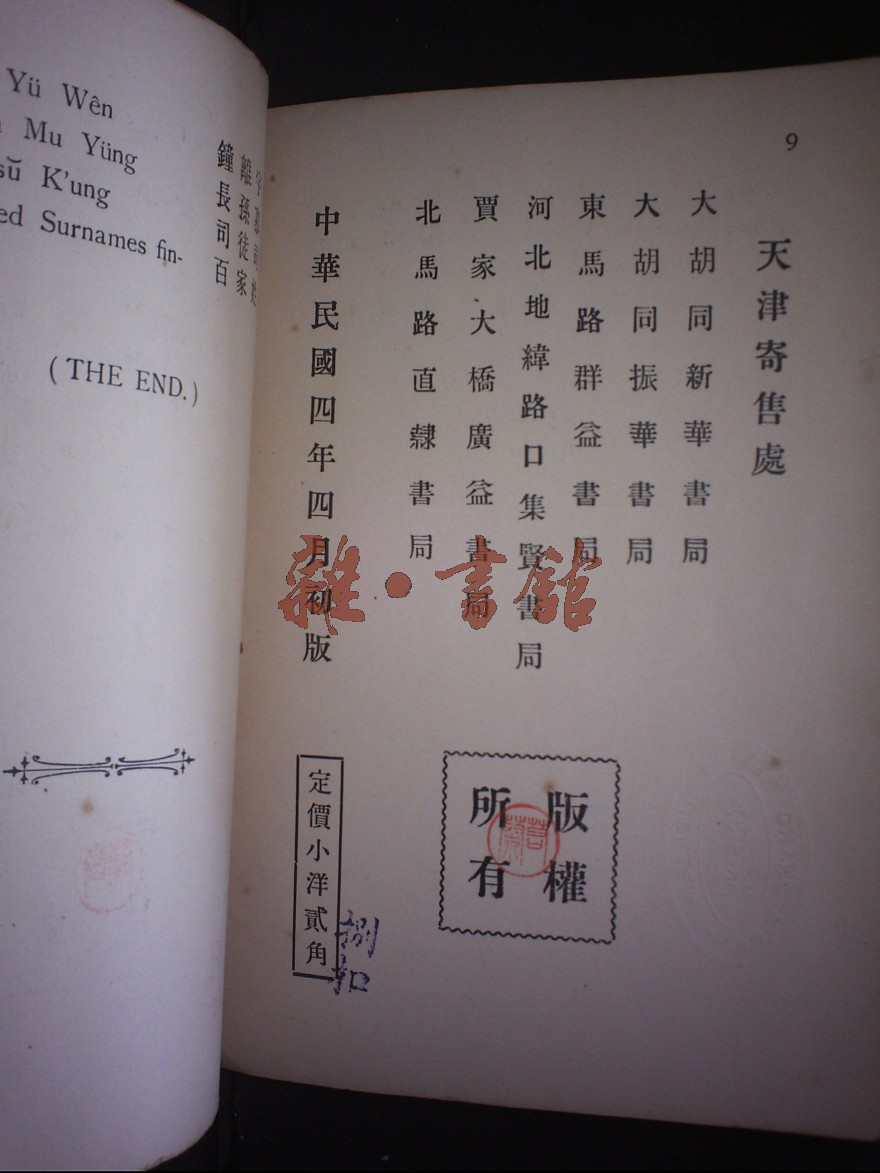 Yü Wên
Mu Yüng
K'ung
Surnames fin-
(THE END.)
離孫徒家
鐘長司百
9
天津寄售處
大胡同新華書局
大胡同振華書局
東馬路群益書局
河北地緯路口集賢書局
賈家大橋廣益書局
北馬路直隸書局
中華民國四年四月初版
定價小洋貳角
捌扣
版權
所有
雜·書館